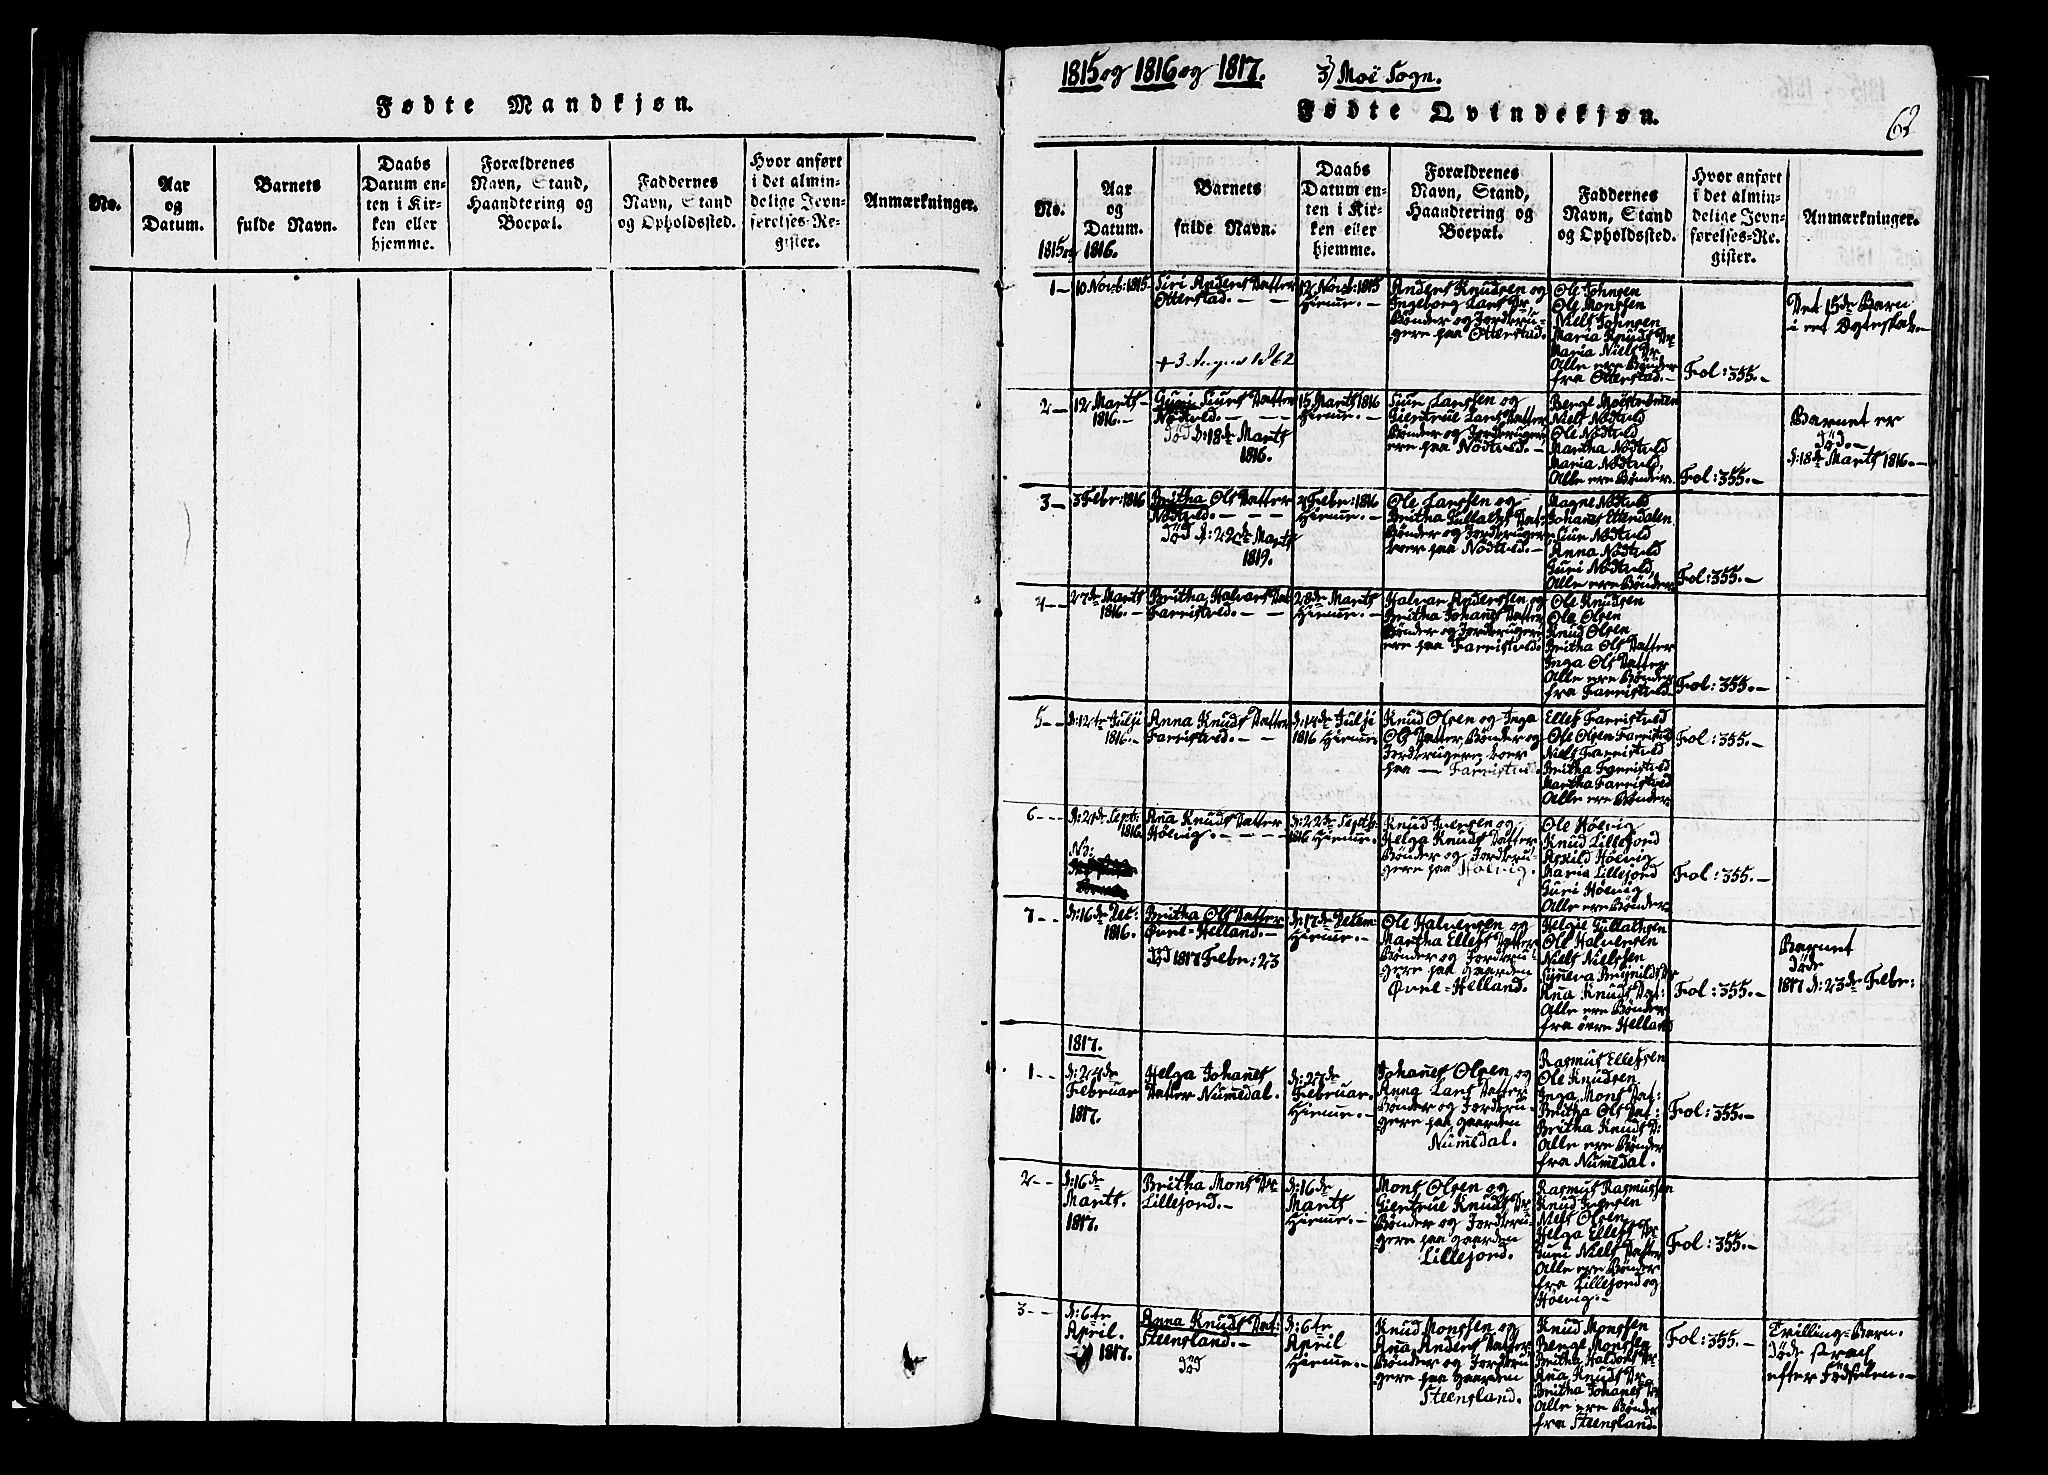 Fødte Mandkjøn.
No.
Aar
og
Datum.
Barnets
fulde Navn.
Daabs
Datum en-
ten i Kir-
ken eller
hjemme.
Forældrenes
Navn, Stand,
Haandtering og
Boepæl.
Faddernes
Navn, Stand
og Opholdssted.
Hvor anført
i det almin-
delige Jevn-
førelses-Re-
gister.
Anmærkninger.
1815 og 1816 og 1817. 3) Moe Sogn.
Fødte Qvindekjøn.
62
No.
1815 og
Aar
og
Datum.
1816.
Barnets
fulde Navn.
Daabs
Datum en-
ten i Kir-
ken eller
hjemme.
Forældrenes
Navn, Stand,
Haandtering og
Boepæl.
Faddernes
Navn, Stand
og Opholdssted.
Hvor anført
i det almin-
delige Jevn-
førelses-Re-
gister.
Anmærkninger.
1 –
10 Novb: 1815
Siri Anders Datter
Otterstad. – –
+ 3 1862
12 Novb: 1815
Hiemme. –
Anders Knudsen og
Ingeborg Lars Dr
Bønder og Jordbru-
gere paa Otterstad.
Ole Johnsen
Ole Monssen
Niels Johnsen
Maria Knuds Dr
Maria Niels Dr
Alle ere Bønder
fra Otterstad. –
Fol: 355. –
Det 15de Barn
i eet Egteskab
2 –
12 Marts
1816. –
Guri Siurs Datter
Nødtved. – – –
Død d: 18de Marts
1816.
15 Marts 1816
Hiemme. –
Siur Larssen og
Giertrue Lars Datter
Bønder og Jordbruger
ere paa Nødtved. –
Berge Moestrømen
Niels Nødtved
Ole Nødtved
Martha Nødtved
Maria Nødtved,
Alle ere Bønder.
Fol: 355. –
Barnet er
død. –
d: 18de Marts 1816. –
3 –
3 Febr: 1816
Britha Ols Datter
Nødtved. – – –
Død d: 22de Marts
1819.
4 Febr: 1816
Hiemme. –
Ole Larssen og
Britha Gullachs Dat
Bønder og Jordbrugere
boer paa Nødtved. –
Magne Nødtved
Johanes Ettendalen
Siur Nødtved
Anna Nødtved
Guri Nødtved,
Alle ere Bønder
Fol: 355. –
4 – –
27de Marts
1816. –
Britha Halvors Dat
Farristved. –
28de Marts
Hiemme. –
Halvor Anderssen og
Britha Johanes Datter
Bønder og Jordbrugere
ere paa Farristved.
Ole Knudsen
Ole Olsen
Knud Olsen
Britha Ols Datter
Inga Ols Datter
Alle ere Bønder
fra Farristved.
Fol: 355. –
5 – –
d: 12te Julji
1816. –
Anna Knuds Datter
Farristved. – –
d: 14de Julji
1816 Hiemme
Knud Olsen og Inga
Ols Datter, Bønder og
Jordbrugere boer
paa – Farristved.
Elles Farristved
Ole Olsen Farristved
Niels Farristved
Britha Farristved
Martha Farristved
Alle ere Bønder
Fol: 355. –
6 – – –
d: 21de Sept:
1816.
Nb:
Aña Knuds Datter
Høevig. – – – –
d: 22de Septb:
1816 Hiemme. –
Knud Iversen og
Helga Knuds Datter
Bønder og Jordbru-
gere paa Høevig.
Ole Høevig
Knud Lillejord
Askild Høevig
Maria Lillejord
Guri Høevig
Alle ere Bønder
Fol: 355. –
7 – –
d: 16de Dec:
1816.
Britha Ols Datter
Øvre-Helland. –
død 1817 Febr: 23
d: 17de Decem:
Hiemme. –
Ole Halversen og
Martha Elless Datter
Bønder og Jordbru-
gere paa gaarden
Øvre-Helland.
Helgie Gullachsen
Ole Halversen
Niels Nielssen
Aña Knuds Dat:
Alle ere Bønder
fra øvre Helland
Fol: 355. –
Barnet
døde
1817 d: 23de Febr:
1 – –
1817.
d: 24de
Februar
1817.
Helga Johanes
Datter Nümedal.
d: 27de
Februar.
Hiemme. –
Johanes Olsen og
Anna Lars Datter
Bønder og Jordbru-
gere paa gaarden
Nümedal.
Rasmus Ellessen
Ole Knudsen
Inga Mons Dat:
Britha Ols Dat:
Britha Knuds D:
Alle ere Bønder
fra Nümedal.
Fol: 355. –
2 – –
d: 16de
Marts.
1817.
Britha Mons Dr
Lillejord. –
d: 16de
Marts
Hiemme. –
Mons Olsen og
Giertrue Knuds Dr
Bønder og Jordbru-
gere paa gaarden
Lillejord.
Rasmus Rasmussen
Knud Iversen
Niels Olsen
Helga Elless Dr
Guri Niels Datter
Alle ere Bønder
fra Lillejord og
Høevig. –
Fol: 355. –
3 – –
d: 6te
April.
1817.
Anna Knuds Dat:
Steensland. –
død
d: 6te
April
Hiemme. –
Knud Monssen og
Aña Anders Datter
Bønder og Jordbru
gere paa gaarden
Steensland.
Knud Monssen
Berge Monssen
Britha Haldors Dr
Ana Knuds Dr
Britha Johanes Dr
Alle ere Bønder
fra Steensland.
Fol: 355. –
Tvilling-Barn.
døde strax
efter Fødselen. –